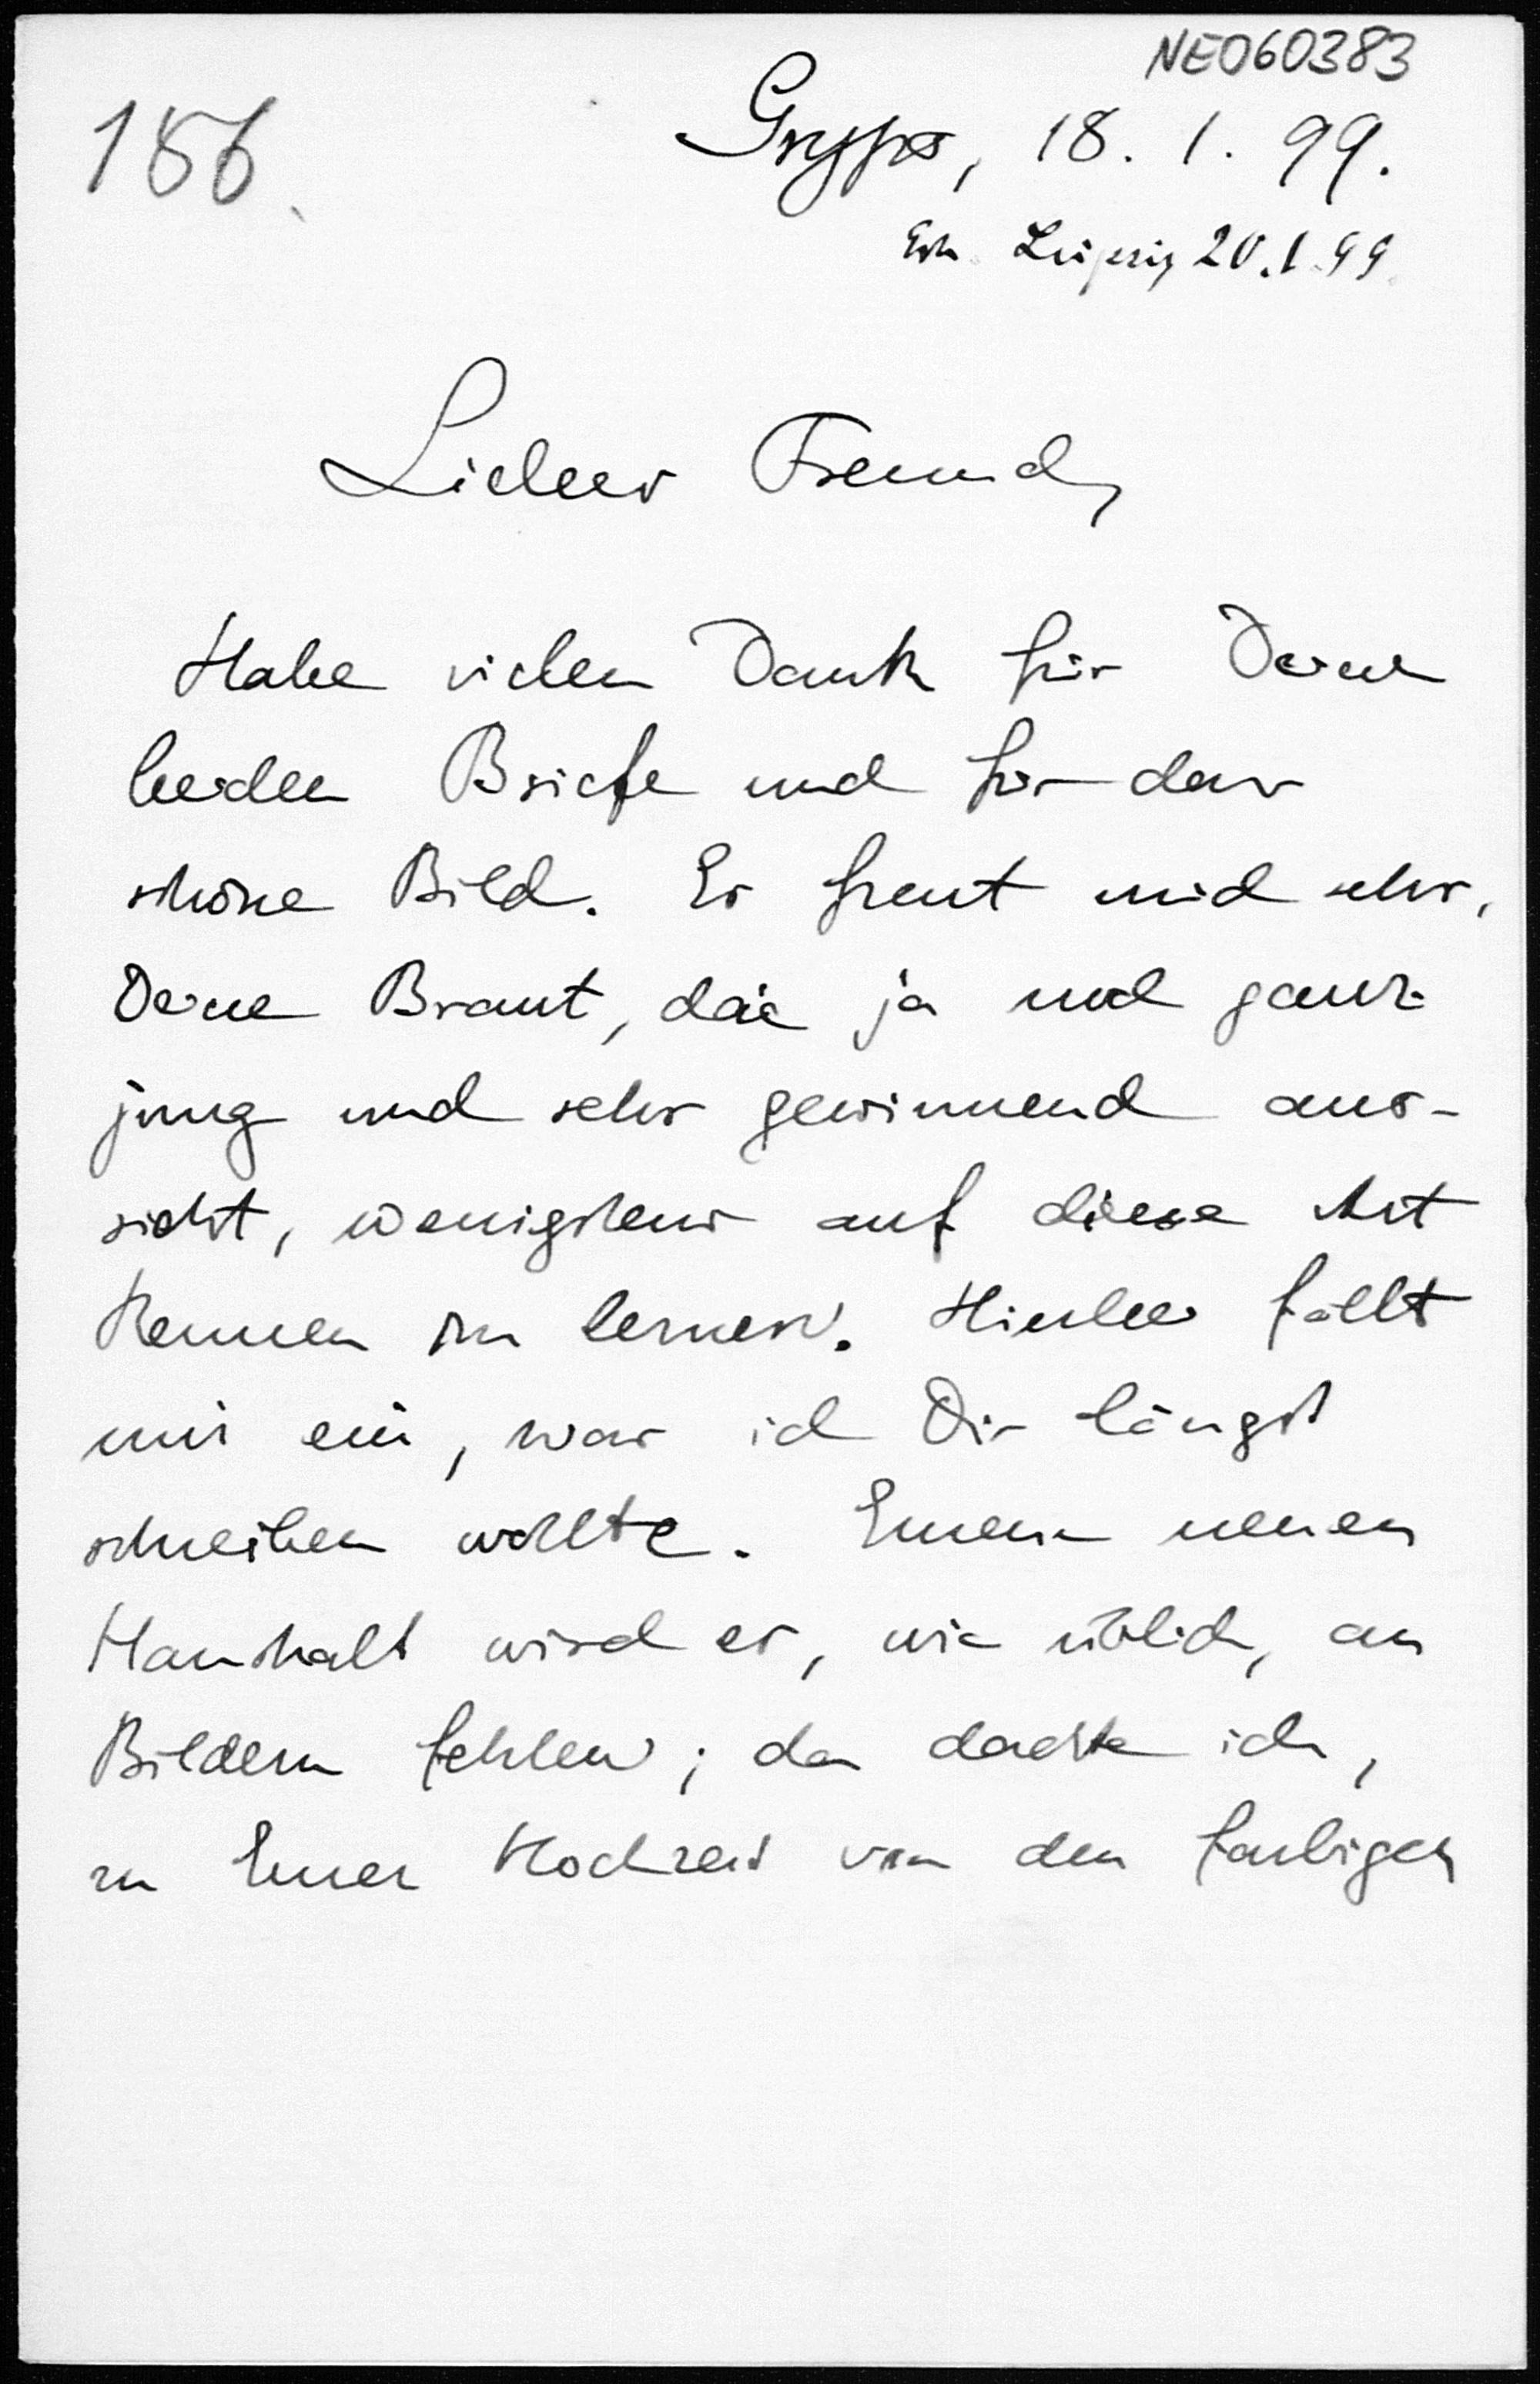 NE060383
186.
Gryps, 18. 1. 99.
Erh. Leipzig 20.1.99.
Lieber Freund,
Habe vielen Dank für Deine
beiden Briefe und für das
schöne Bild. Es freut mich sehr,
Deine Braut, die ja noch ganz
jung und sehr gewinnend aus-
sieht, wenigstens auf diese Art
kennen zu lernen. Hierbei fällt
mir ein, was ich Dir längst
schreiben wollte. Eurem neuen
Haushalt wird es, wie üblich, an
Bildern fehlen; da dachte ich,
zu Eurer Hochzeit von den farbigen